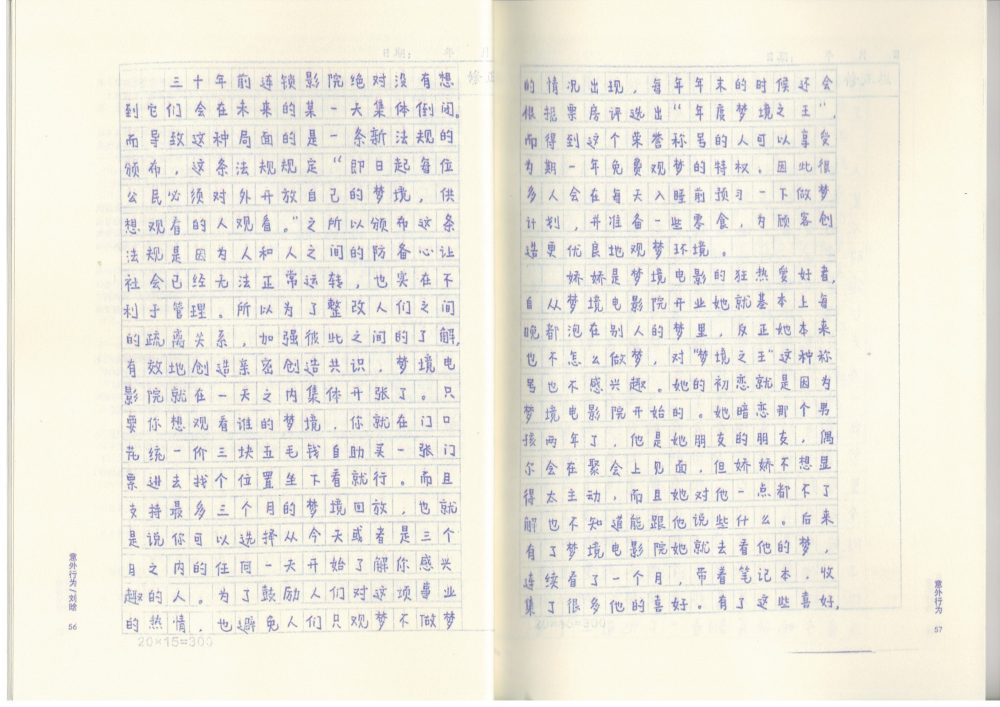 日期： 年 月
三十年前连锁影院绝对没有想
到它们会在未来的某一天集体倒闭。
而导致这种局面的是一条新法规的
颁布，这条法规规定“即日起每位
公民必须对外开放自己的梦境，供
想观看的人观看。”之所以颁布这条
法规是因为人和人之间的防备心让
社会已经无法正常运转，也实在不
利于管理。所以为了整改人们之间
的疏离关系，加强彼此之间的了解，
有效地创造亲密创造共识，梦境电
影院就在一天之内集体开张了。只
要你想观看谁的梦境，你就在门口
花统一价三块五毛钱自助买一张门
票进去找个位置坐下看就行。而且
支持最多三个月的梦境回放，也就
是说你可以选择从今天或者是三个
月之内的任何一天开始了解你感兴
趣的人。为了鼓励人们对这项事业
的热情，也避免人们只观梦不做梦
20×15=300
意外行为/刘晗
56
日期： 年 月 日
的情况出现，每年年末的时候还会
根据票房评选出“年度梦境之王”，
而得到这个荣誉称号的人可以享受
为期一年免费观梦的特权。因此很
多人会在每天入睡前预习一下做梦
计划，并准备一些零食，为顾客创
造更优良地观梦环境。
娇娇是梦境电影的狂热爱好者，
自从梦境电影院开业她就基本上每
晚都泡在别人的梦里，反正她本来
也不怎么做梦，对“梦境之王”这种称
号也不感兴趣。她的初恋就是因为
梦境电影院开始的。她暗恋那个男
孩两年了，他是她朋友的朋友，偶
尔会在聚会上见面，但娇娇不想显
得太主动，而且她对他一点都不了
解也不知道能跟他说些什么。后来
有了梦境电影院她就去看他的梦，
连续看了一个月，带着笔记本，收
集了很多他的喜好。有了这些喜好，
意外行为
57